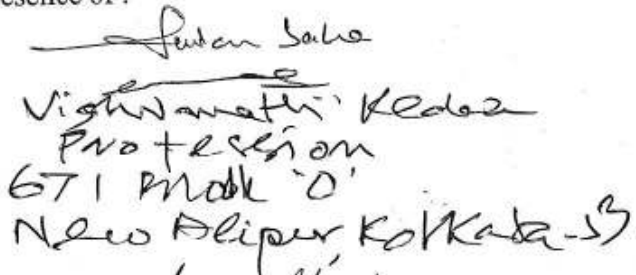 esence of :
Saha
Vishwanath Kedia
Profession
671 Block 'O'
New Alipur Kolkata-53